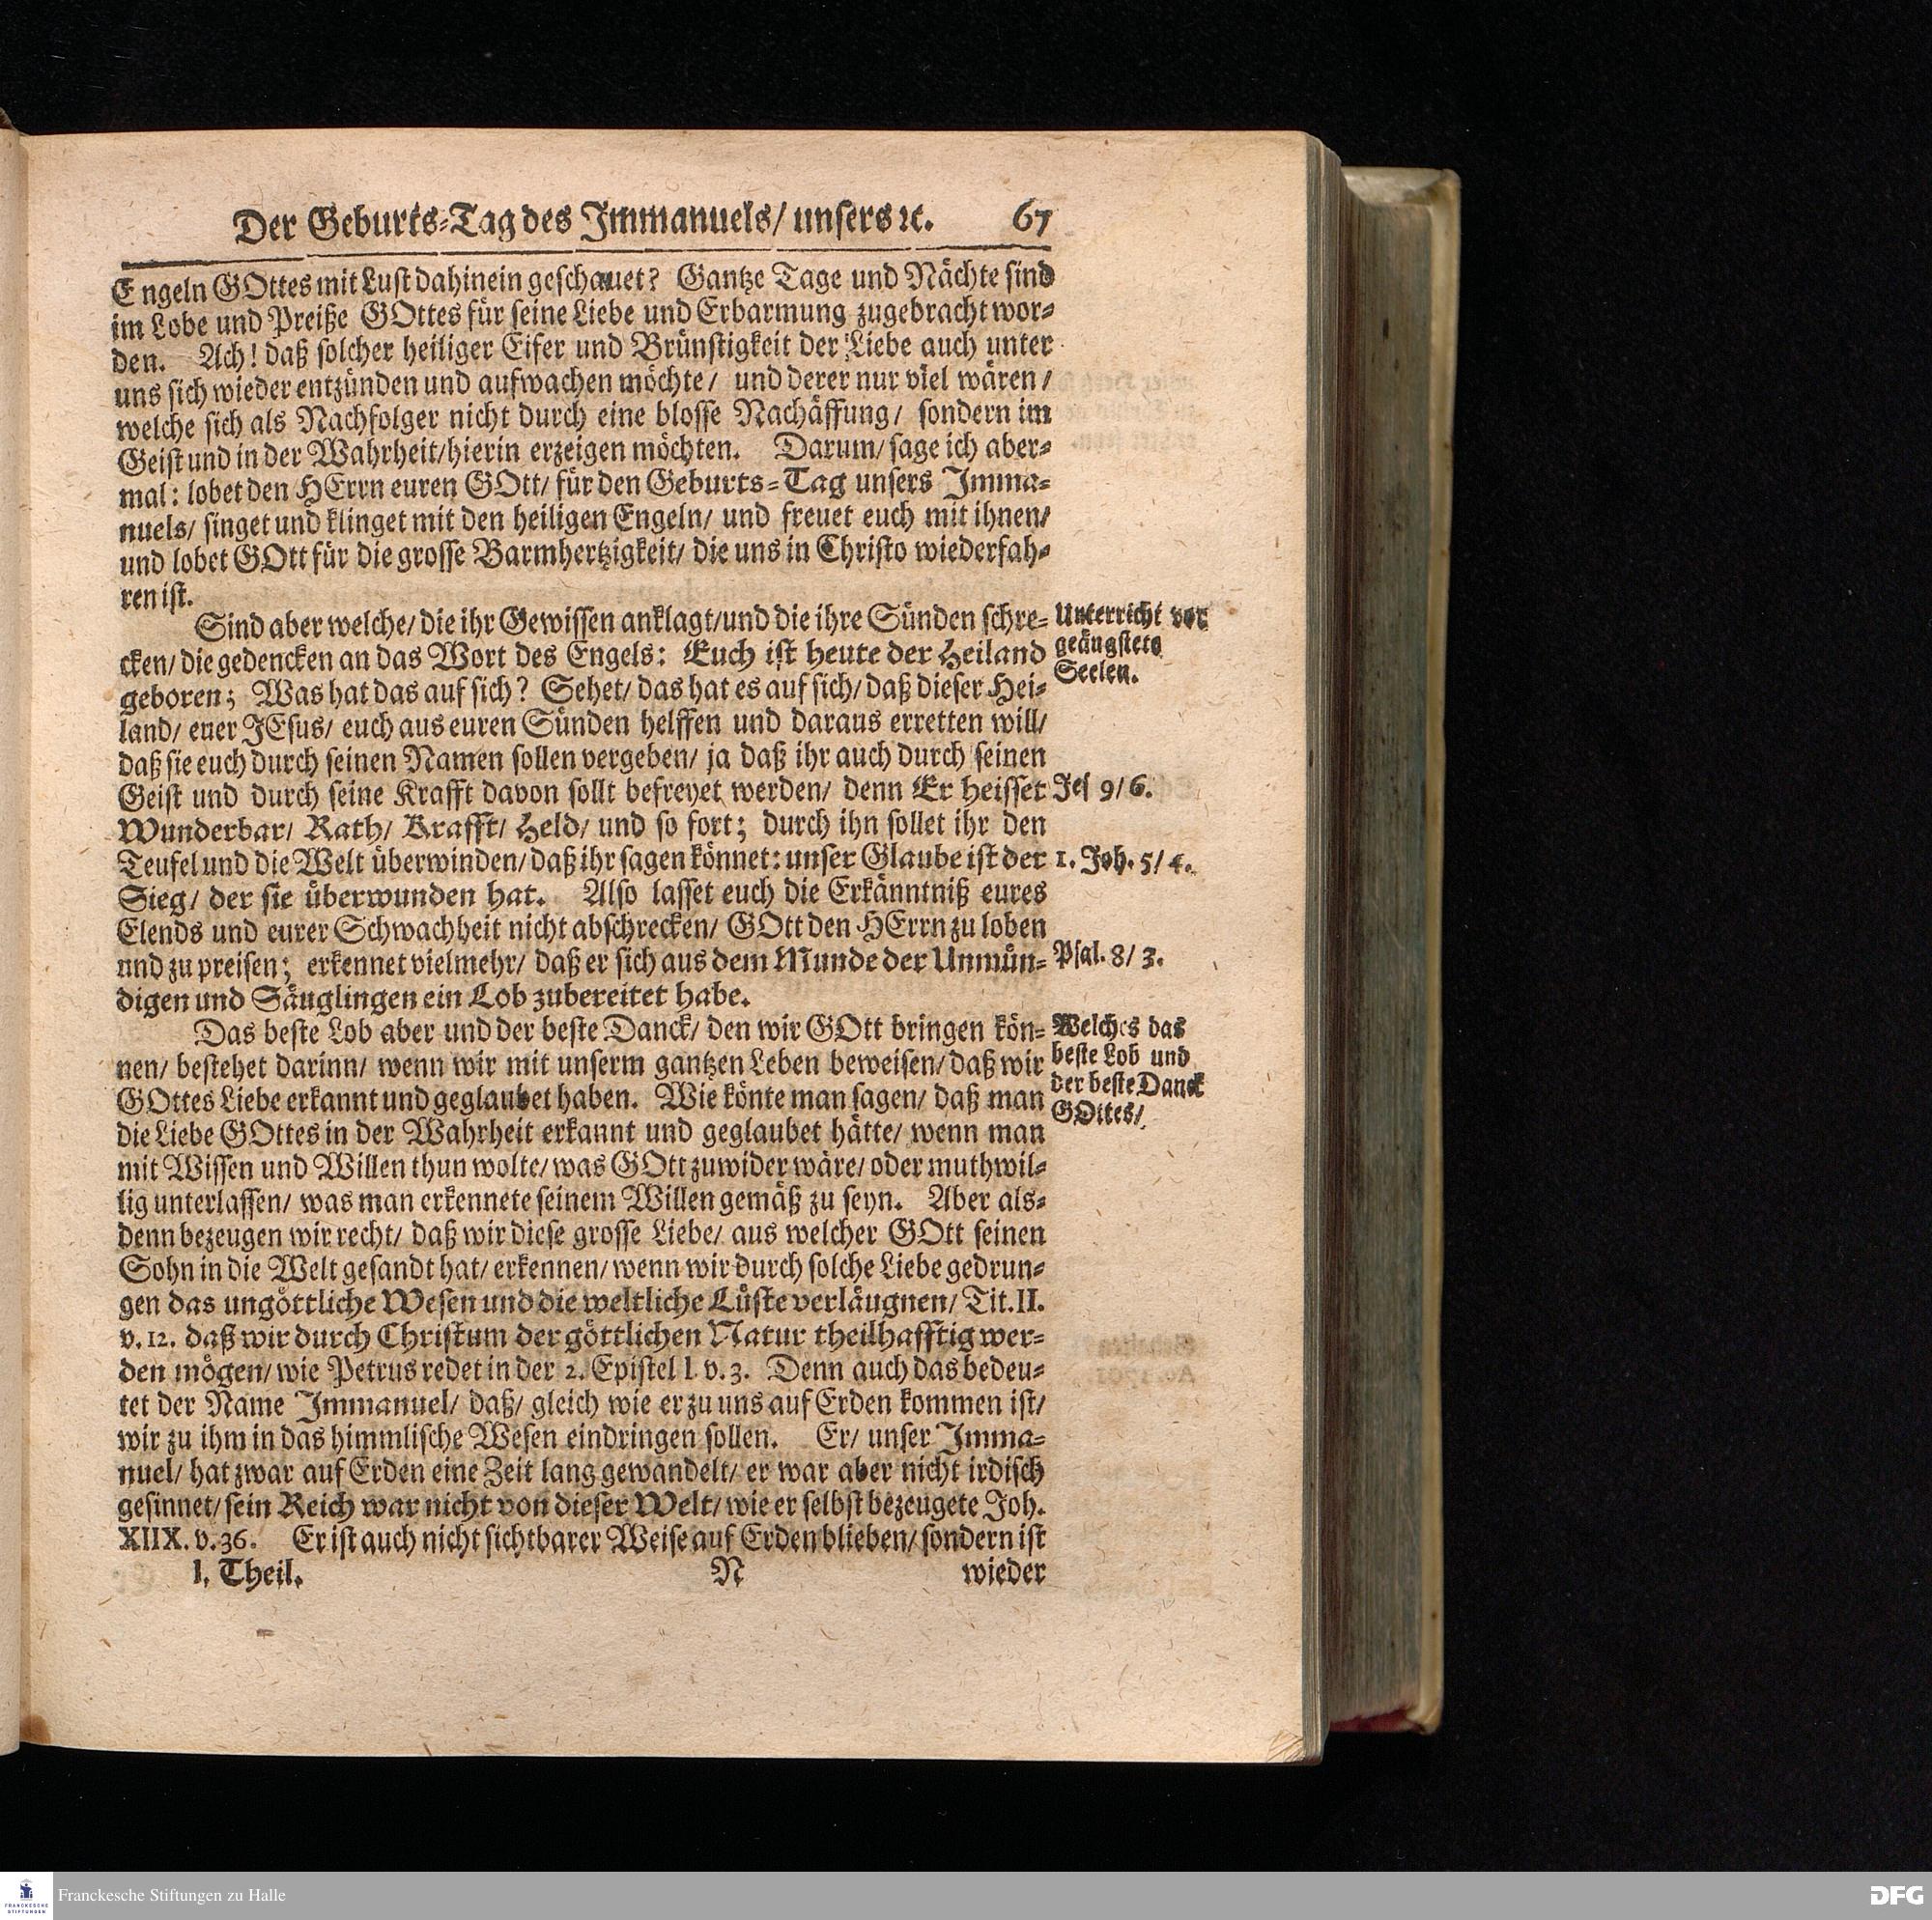 Der Geburts-Tag des Immanuels/ unsers ꝛc. 67
Engeln GOttes mit Lust dahinein geschauet? Gantze Tage und Nächte sind
im Lobe und Preiße GOttes für seine Liebe und Erbarmung zugebracht wor-
den. Ach! daß solcher heiliger Eifer und Brünstigkeit der Liebe auch unter
uns sich wieder entzünden und aufwachen möchte/ und derer nur viel wären/
welche sich als Nachfolger nicht durch eine blosse Nachäffung/ sondern im
Geist und in der Wahrheit/hierin erzeigen möchten. Darum/ sage ich aber-
mal: lobet den HErrn euren GOtt/ für den Geburts-Tag unsers Imma-
nuels/ singet und klinget mit den heiligen Engeln/ und freuet euch mit ihnen/
und lobet GOtt für die grosse Barmhertzigkeit/ die uns in Christo wiederfah-
ren ist.
Sind aber welche/ die ihr Gewissen anklagt/und die ihre Sünden schre-
cken/ die gedencken an das Wort des Engels: Euch ist heute der Heiland
geboren; Was hat das auf sich? Sehet/ das hat es auf sich/ daß dieser Hei-
land/ euer JEsus/ euch aus euren Sünden helffen und daraus erretten will/
daß sie euch durch seinen Namen sollen vergeben/ ja daß ihr auch durch seinen
Geist und durch seine Krafft davon sollt befreyet werden/ denn Er heisset
Wunderbar/ Rath/ Krafft/ Held/ und so fort; durch ihn sollet ihr den
Teufel und die Welt überwinden/ daß ihr sagen könnet: unser Glaube ist der
Sieg/ der sie überwunden hat. Also lasset euch die Erkänntniß eures
Elends und eurer Schwachheit nicht abschrecken/ GOtt den HErrn zu loben
und zu preisen; erkennet vielmehr/ daß er sich aus dem Munde der Unmün-
digen und Säuglingen ein Lob zubereitet habe.
Das beste Lob aber und der beste Danck/ den wir GOtt bringen kön-
nen/ bestehet darinn/ wenn wir mit unserm gantzen Leben beweisen/ daß wir
GOttes Liebe erkannt und geglaubet haben. Wie könte man sagen/ daß man
die Liebe GOttes in der Wahrheit erkannt und geglaubet hätte/ wenn man
mit Wissen und Willen thun wolte/ was GOtt zuwider wäre/ oder muthwil-
lig unterlassen/ was man erkennete seinem Willen gemäß zu seyn. Aber als-
denn bezeugen wir recht/ daß wir diese grosse Liebe/ aus welcher GOtt seinen
Sohn in die Welt gesandt hat/ erkennen/ wenn wir durch solche Liebe gedrun-
gen das ungöttliche Wesen und die weltliche Lüste verläugnen/ Tit. II.
v. 12. daß wir durch Christum der göttlichen Natur theilhafftig wer-
den mögen/ wie Petrus redet in der 2. Epistel I. v. 3. Denn auch das bedeu-
tet der Name Immanuel/ daß/ gleich wie er zu uns auf Erden kommen ist/
wir zu ihm in das himmlische Wesen eindringen sollen. Er/ unser Imma-
nuel/ hat zwar auf Erden eine Zeit lang gewandelt/ er war aber nicht irdisch
gesinnet/ sein Reich war nicht von dieser Welt/ wie er selbst bezeugete Joh.
XIIX. v. 36. Er ist auch nicht sichtbarer Weise auf Erden blieben/ sondern ist
I. Theil. N wieder
Unterricht vor
geängstete
Seelen.
Jes 9/ 6.
1. Joh. 5/ 4.
Psal. 8/ 3.
Welches das
beste Lob und
der beste Danck
GOttes/
FRANCKESCHE
STIFTUNGEN
Franckesche Stiftungen zu Halle
DFG